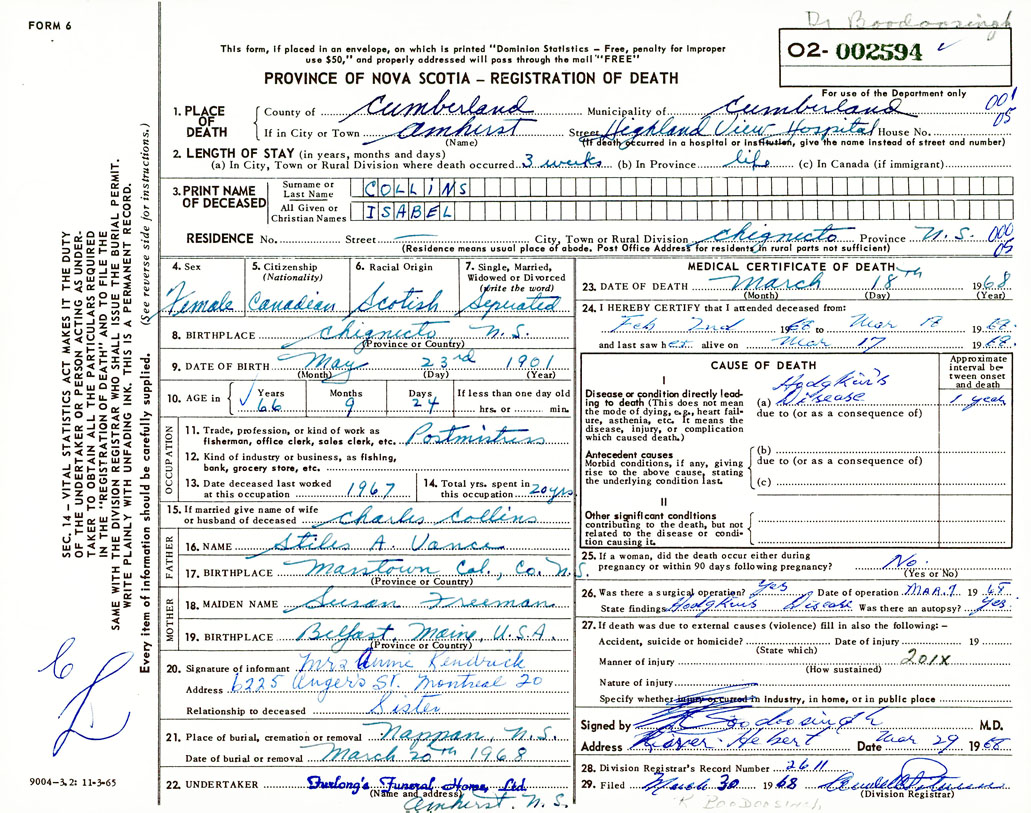 FORM 6
Dr Boodoosingh
This form, if placed in an envelope, on which is printed "Dominion Statistics – Free, penalty for improper
use $50," and properly addressed will pass through the mail "FREE"
O2- 002594
PROVINCE OF NOVA SCOTIA – REGISTRATION OF DEATH
For use of the Department only
1. PLACE OF DEATH
County of Cumberland Municipality of Cumberland 001
05
If in City or Town Amherst Street Highland View Hospital House No.
(Name) (If death occurred in a hospital or institution, give the name instead of street and number)
2. LENGTH OF STAY (in years, months and days)
(a) In City, Town or Rural Division where death occurred 3 weeks (b) In Province life (c) In Canada (if immigrant)
3. PRINT NAME OF DECEASED
Surname or Last Name COLLiNS
All Given or Christian Names ISABEL
RESIDENCE No. Street — City, Town or Rural Division Chignecto Province N.S. 000
05
(Residence means usual place of abode. Post Office Address for residents in rural parts not sufficient)
4. Sex Female
5. Citizenship (Nationality) Canadian
6. Racial Origin Scotish
7. Single, Married, Widowed or Divorced (Write the word) Seperated
8. BIRTHPLACE Chignecto N.S.
(Province or Country)
9. DATE OF BIRTH May 23rd 1901
(Month) (Day) (Year)
10. AGE in Years 66 Months 9 Days 24 If less than one day old hrs. or min.
OCCUPATION
11. Trade, profession, or kind of work as fisherman, office clerk, sales clerk, etc. Postmistress
12. Kind of industry or business, as fishing, bank, grocery store, etc.
13. Date deceased last worked at this occupation 1967
14. Total yrs. spent in this occupation 20yrs
15. If married give name of wife or husband of deceased Charles Collins
FATHER
16. NAME Stiles A. Vance
17. BIRTHPLACE Col., Co. N.S.
(Province or Country)
MOTHER
18. MAIDEN NAME Susan Freeman
19. BIRTHPLACE Belfast, Maine, U.S.A.
(Province or Country)
20. Signature of informant Mrs Annie Kendrick
Address 6225 Angers St. Montreal 20
Relationship to deceased Sister
21. Place of burial, cremation or removal Nappan, N.S.
Date of burial or removal March 20th 1968
22. UNDERTAKER Furlong's Funeral Home, Ltd.
(Name and address) Amherst, N.S.
MEDICAL CERTIFICATE OF DEATH
23. DATE OF DEATH March 18th 1968
(Month) (Day) (Year)
24. I HEREBY CERTIFY that I attended deceased from:
Feb 2nd 1968 to Mar 18 1968
and last saw her alive on Mar 17 1968
CAUSE OF DEATH
Approximate interval between onset and death
I
Disease or condition directly leading to death (This does not mean the mode of dying, e.g., heart failure, asthenia, etc. It means the disease, injury, or complication which caused death.)
(a) Hodgkin's Disease 1 year
due to (or as a consequence of)
Antecedent causes
Morbid conditions, if any, giving rise to the above cause, stating the underlying condition last.
(b)
due to (or as a consequence of)
(c)
II
Other significant conditions
contributing to the death, but not related to the disease or condition causing it.
25. If a woman, did the death occur either during pregnancy or within 90 days following pregnancy? No.
(Yes or No)
26. Was there a surgical operation? Yes Date of operation MAR. 7 1968
State findings Hodgkin's Disease Was there an autopsy? Yes
27. If death was due to external causes (violence) fill in also the following: –
Accident, suicide or homicide? Date of injury 19
(State which)
Manner of injury 201X
(How sustained)
Nature of injury
Specify whether injury occurred in industry, in home, or in public place
Signed by Boodoosingh M.D.
Address River Hebert Date Mar 29 1968
28. Division Registrar's Record Number 2611
29. Filed March 30 1968
(Division Registrar)
R BOODOOSINGH
SEC. 14 – VITAL STATISTICS ACT MAKES IT THE DUTY
OF THE UNDERTAKER OR PERSON ACTING AS UNDER-
TAKER TO OBTAIN ALL THE PARTICULARS REQUIRED
IN THE "REGISTRATION OF DEATH" AND TO FILE THE
SAME WITH THE DIVISION REGISTRAR WHO SHALL ISSUE THE BURIAL PERMIT.
WRITE PLAINLY WITH UNFADING INK. THIS IS A PERMANENT RECORD.
Every item of information should be carefully supplied. (See reverse side for instructions.)
9004-3.2: 11-3-65